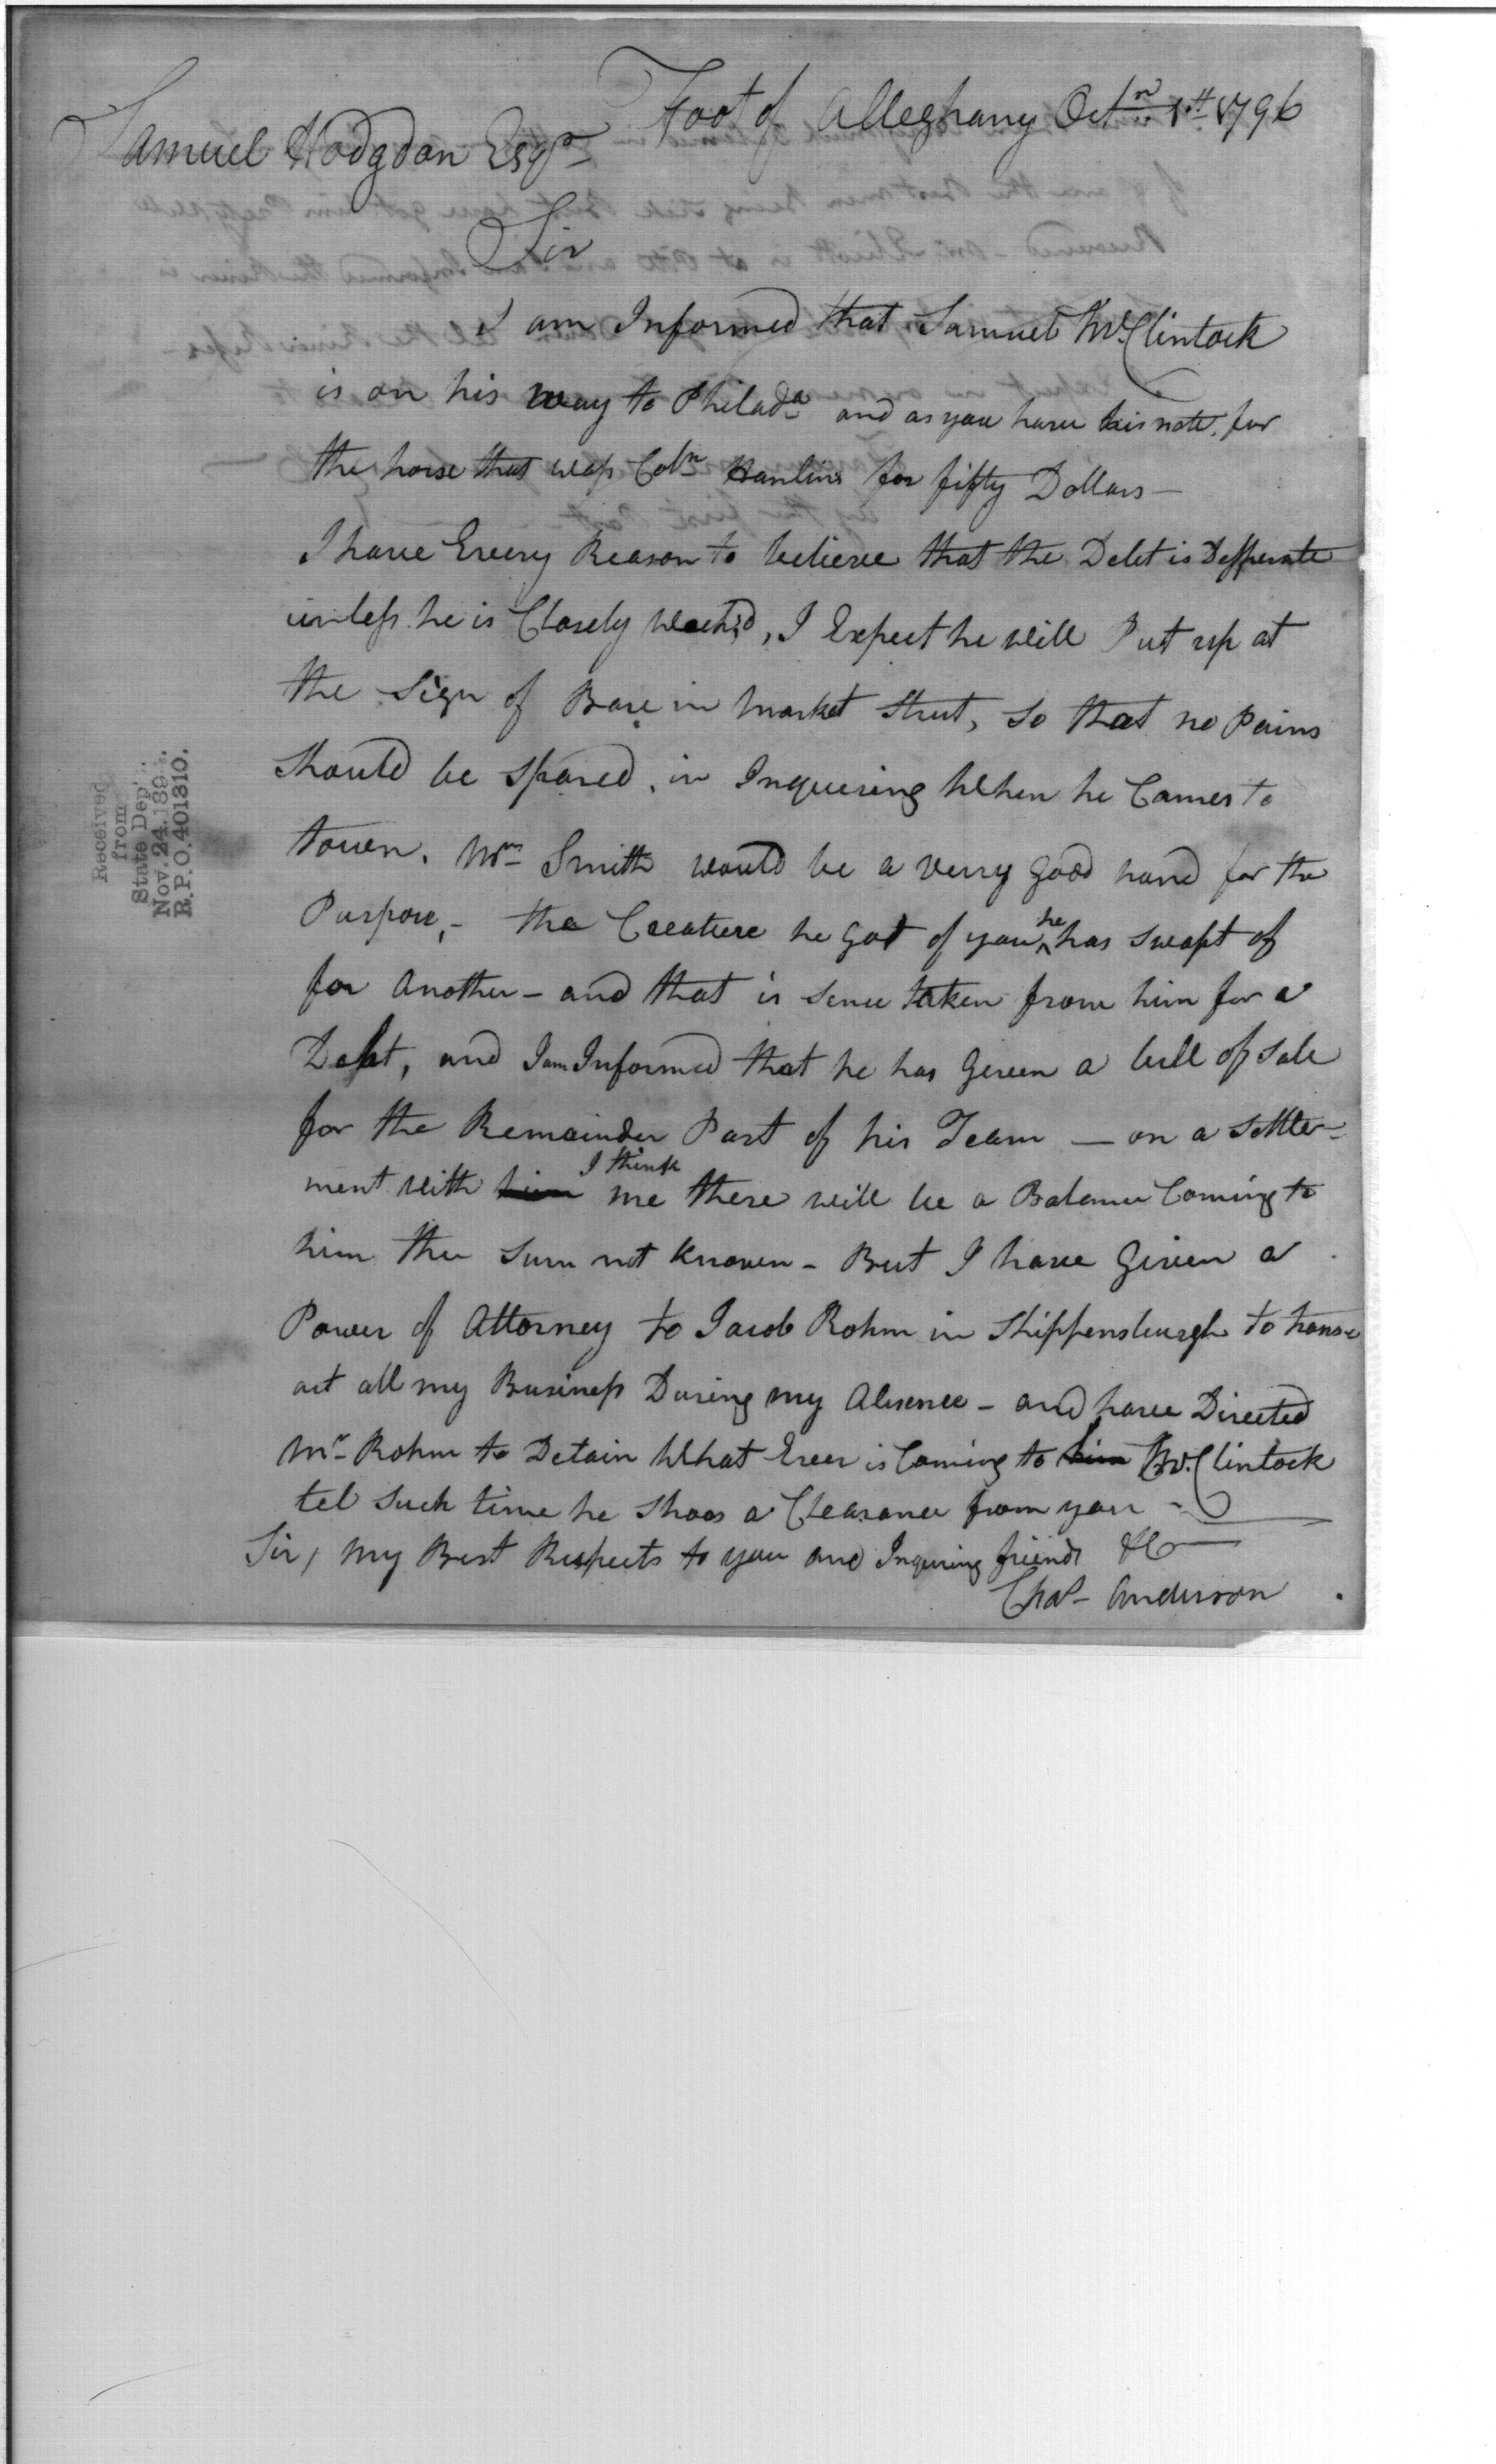 Foot of Alleghany Octr 1st 1796
Samuel Hodgdon Esqr
Sir
I am Informed that Samuel McClintock
is on his way to Philada and as you have his note, for
the horse that was Coln Hanlins for fifty Dollars —
I have Every Reason to believe that the Debt is Desperate
unless he is Closely Watch'd, I Expect he will Put up at
the Sign of Bare in Market Street, so that no Pains
Should be Spared, in Inquiering When he Comes to
town. Mr Smith would be a verry good hand for the
Purpose, - the Creature he got of you he has swapt of
for Another - and that is sence taken from him for a
Debt, and I am Informed that he has Geven a bill of Sale
for the Remainder Part of his Team — on a settle=
ment with him I think me there will be a Balance Coming to
him the Sum not Known - But I have Given a
Power of Attorney to Jacob Rohm in Shippensburgh to trans=
act all my Business During my Absence - and have Directed
Mr Rohm to Detain What Ever is Coming to him McClintock
tel Such time he Shoos a Clearance from you -
Sir, my Best Respects to you and Inquiring friends &c —
Chas Anderson
Received
from
State Dep't.
Nov. 24. 189
R.P.O. 401310.